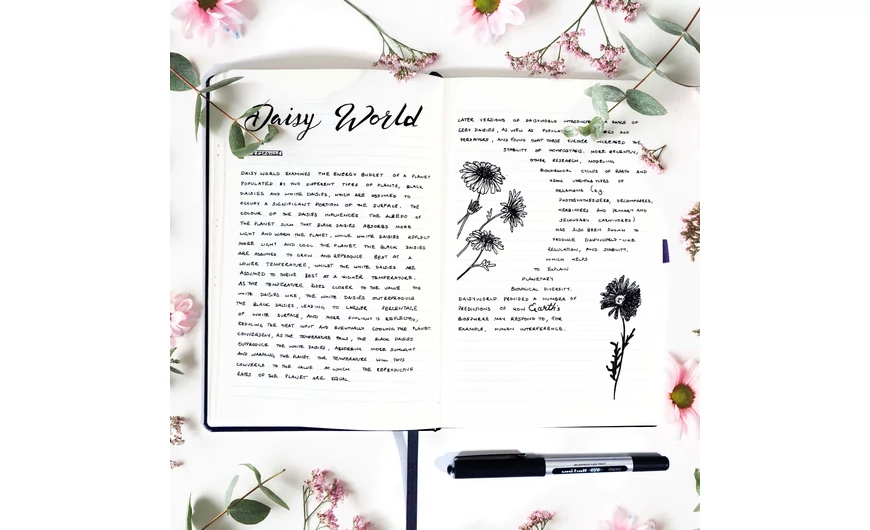 Daisy World
DAISY WORLD EXAMINES THE ENERGY BUDGET OF A PLANET
POPULATED BY TWO DIFFERENT TYPES OF PLANTS, BLACK
DAISIES AND WHITE DAISIES, WHICH ARE ASSUMED TO
OCCUPY A SIGNIFICANT PORTION OF THE SURFACE. THE
COLOUR OF THE DAISIES INFLUENCES THE ALBEDO OF
THE PLANET SUCH THAT BLACK DAISIES ABSORBS MORE
LIGHT AND WARM THE PLANET, WHILE WHITE DAISIES REFLECT
MORE LIGHT AND COOL THE PLANET. THE BLACK DAISIES
ARE ASSUMED TO GROW AND REPRODUCE BEST AT A
LOWER TEMPERATURE, WHILST THE WHITE DAISIES ARE
ASSUMED TO THRIVE BEST AT A HIGHER TEMPERATURE.
AS THE TEMPERATURE RISES CLOSER TO THE VALUE THE
WHITE DAISIES LIKE, THE WHITE DAISIES OUTREPRODUCE
THE BLACK DAISIES, LEADING TO LARGER PERCENTAGE
OF WHITE SURFACE, AND MORE SUNLIGHT IS REFLECTED,
REDUCING THE HEAT INPUT AND EVENTUALLY COOLING THE PLANET.
CONVERSELY, AS THE TEMPERATURE FALLS, THE BLACK DAISIES
OUTPRODUCE THE WHITE DAISIES, ABSORBING MORE SUNLIGHT
AND WARMING THE PLANET. THE TEMPERATURE WILL THUS
CONVERGE TO THE VALUE AT WHICH THE REPRODUCTIVE
RATES OF THE PLANET ARE EQUAL.
LATER VERSIONS OF DAISYWORLD INTRODUCED A RANGE OF
GREY DAISIES, AS WELL AS AND
PREDATORS, AND FOUND THAT THESE FURTHER INCREASED THE
STABILITY OF HOMEOSTASIS. MORE RECENTLY,
OTHER RESEARCH, MODELING
BIOCHEMICAL CYCLES OF EARTH AND
USING VARIOUS TYPES OF
ORGANISMS (e.g.
PHOTOSYNTHESISERS, DECOMPOSERS,
HERBIVORES AND PRIMARY AND
SECONDARY CARNIVORES)
HAS ALSO BEEN SHOWN TO
PRODUCE DAISYWORLD-LIKE
REGULATION, AND STABILITY,
WHICH HELPS
TO EXPLAIN
PLANETARY
BIOLOGICAL DIVERSITY.
DAISYWORLD PROVIDES A NUMBER OF
PREDICTIONS OF HOW Earth's
BIOSPHERE MAY RESPOND TO, FOR
EXAMPLE, HUMAN INTERFERENCE.
uni-ball eye